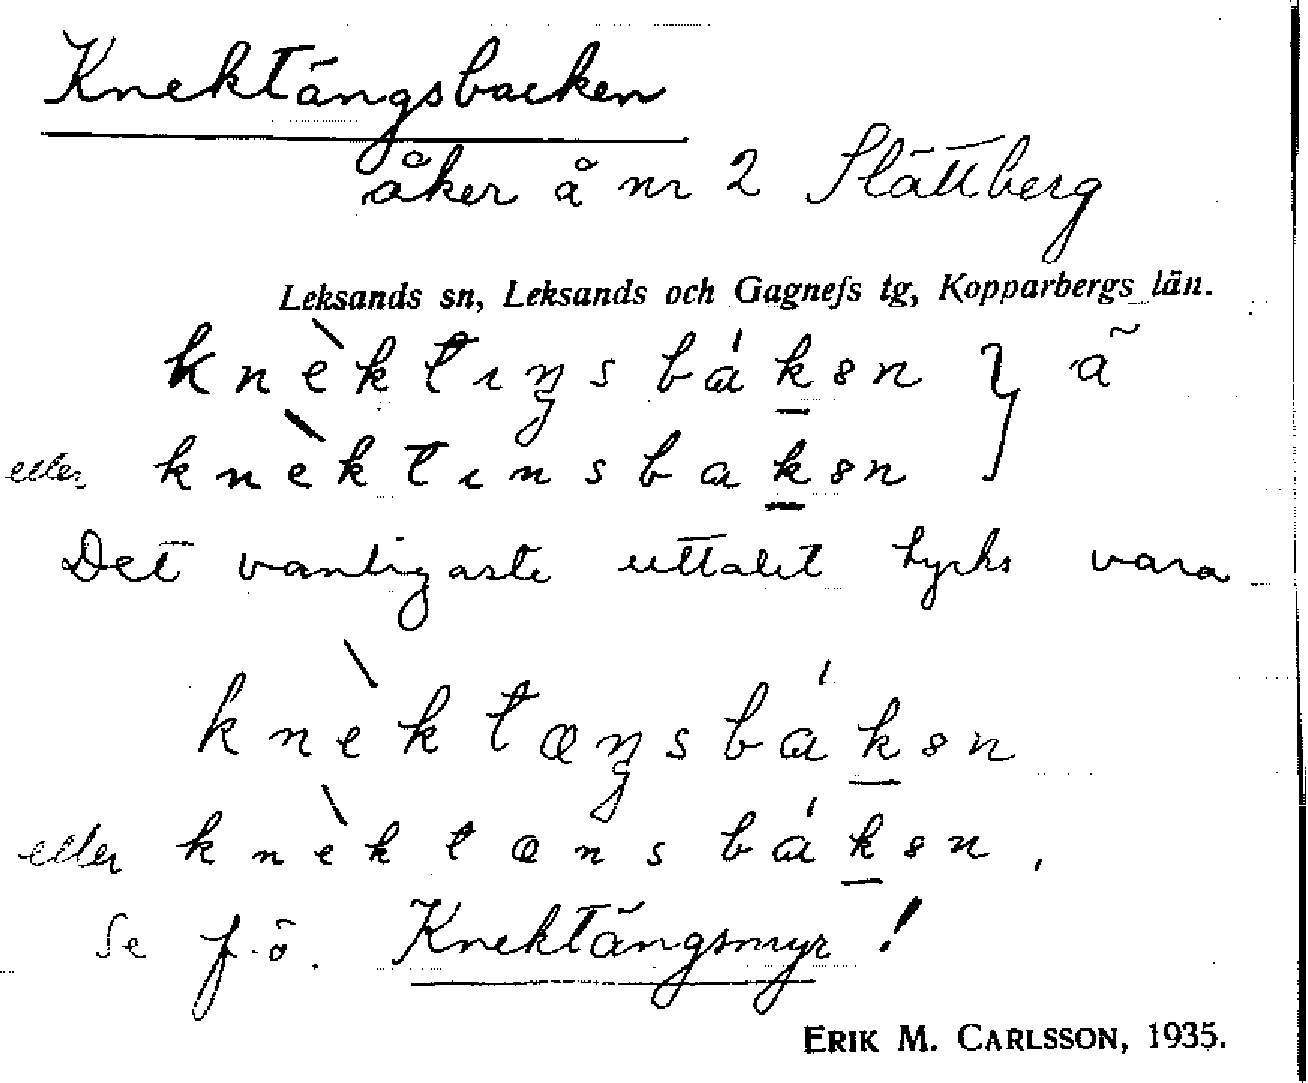 Knektängsbacken
åker å nr 2 Slättberg
Leksands sn, Leksands och Gagnefs tg, Kopparbergs län.
knὲktıŋsbák̲ən } ã
eller knὲktınsbak̲ən
Det vanligaste uttalet tycks vara
knὲktæŋsbák̲ən
eller knὲktænsbák̲ən.
Se f.ö. Knektängsmyr!
ERIK M. CARLSSON, 1935.